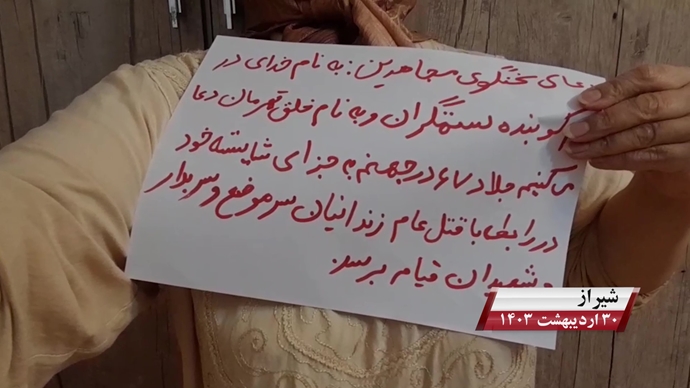 دعای سخنگوی مجاهدین: به نام خدای در
هم کوبنده ستمگران و به نام خلق قهرمان دعا
می‌کنیم جلاد ۶۷ در جهنم به جزای شایسته خود
در رابطه با قتل عام زندانیان سرموضع و سربدار
و شهیدان قیام برسد.
شیراز
۳۰ اردیبهشت ۱۴۰۳